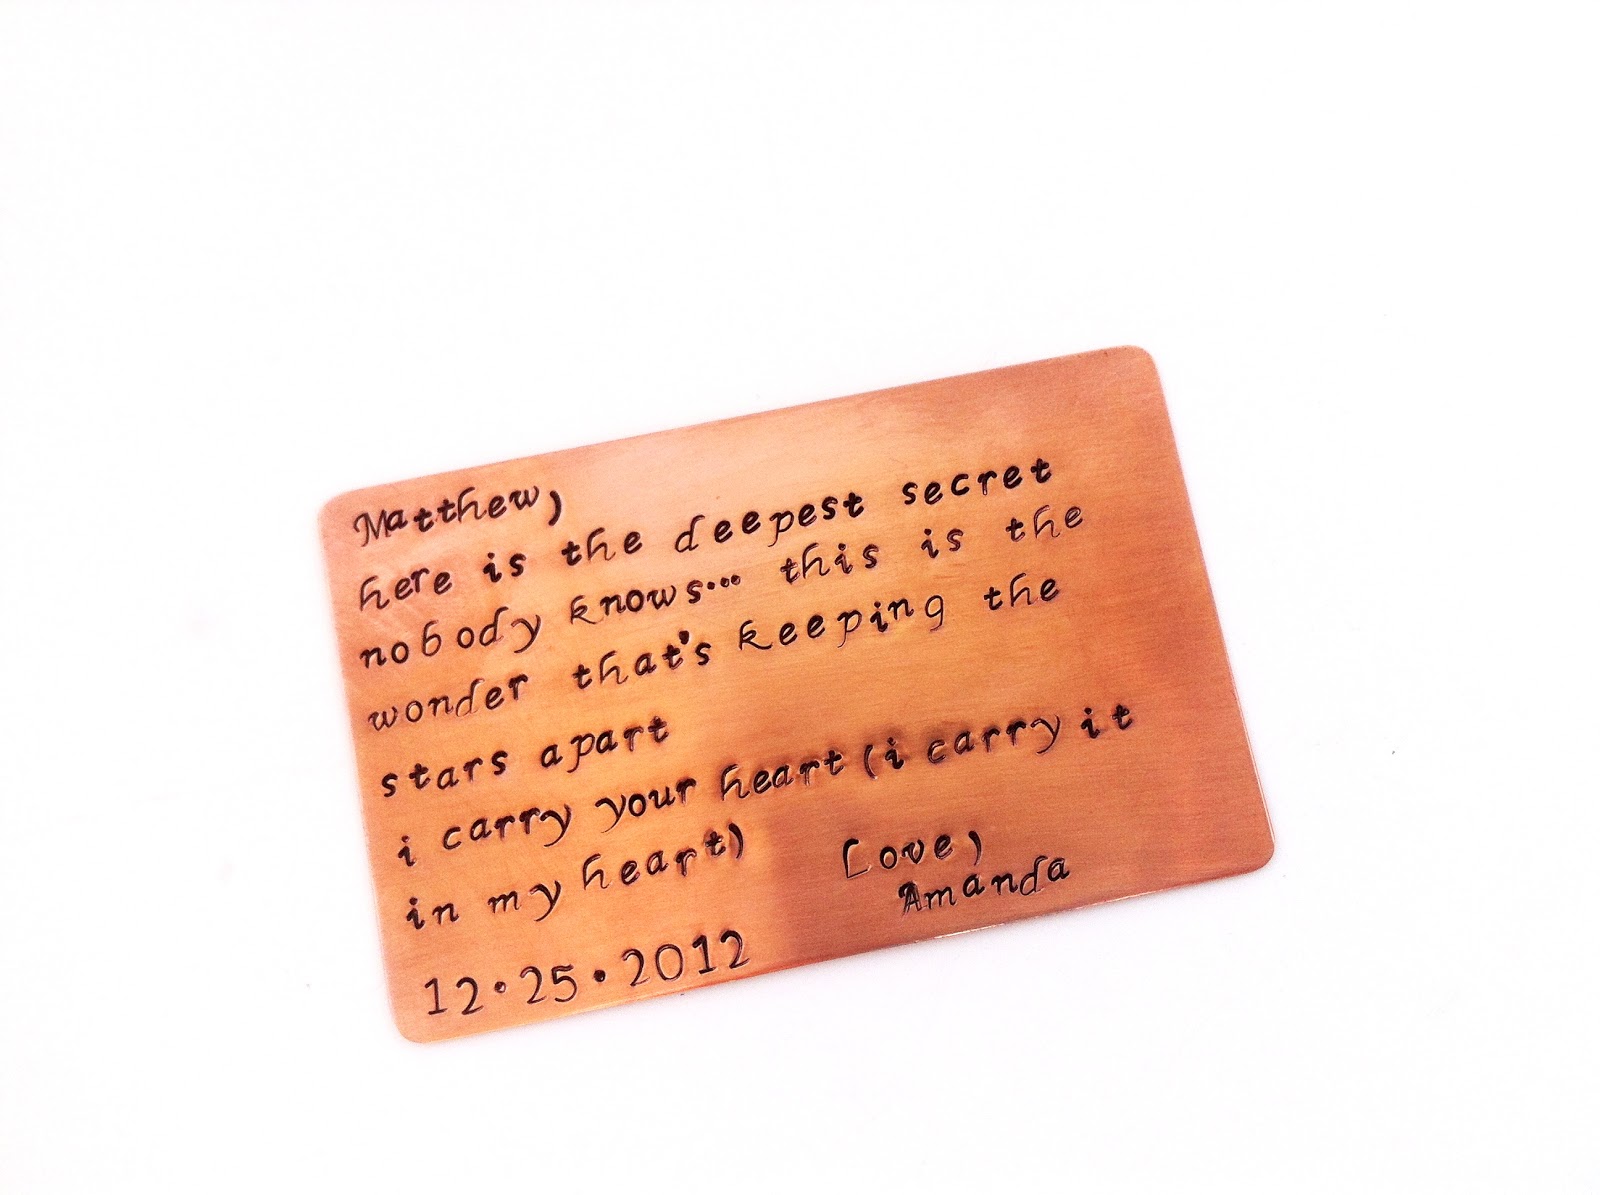 Matthew,
here is the deepest secret
nobody knows... this is the
wonder that's keeping the
stars apart
i carry your heart (i carry it
in my heart)
Love,
Amanda
12•25•2012